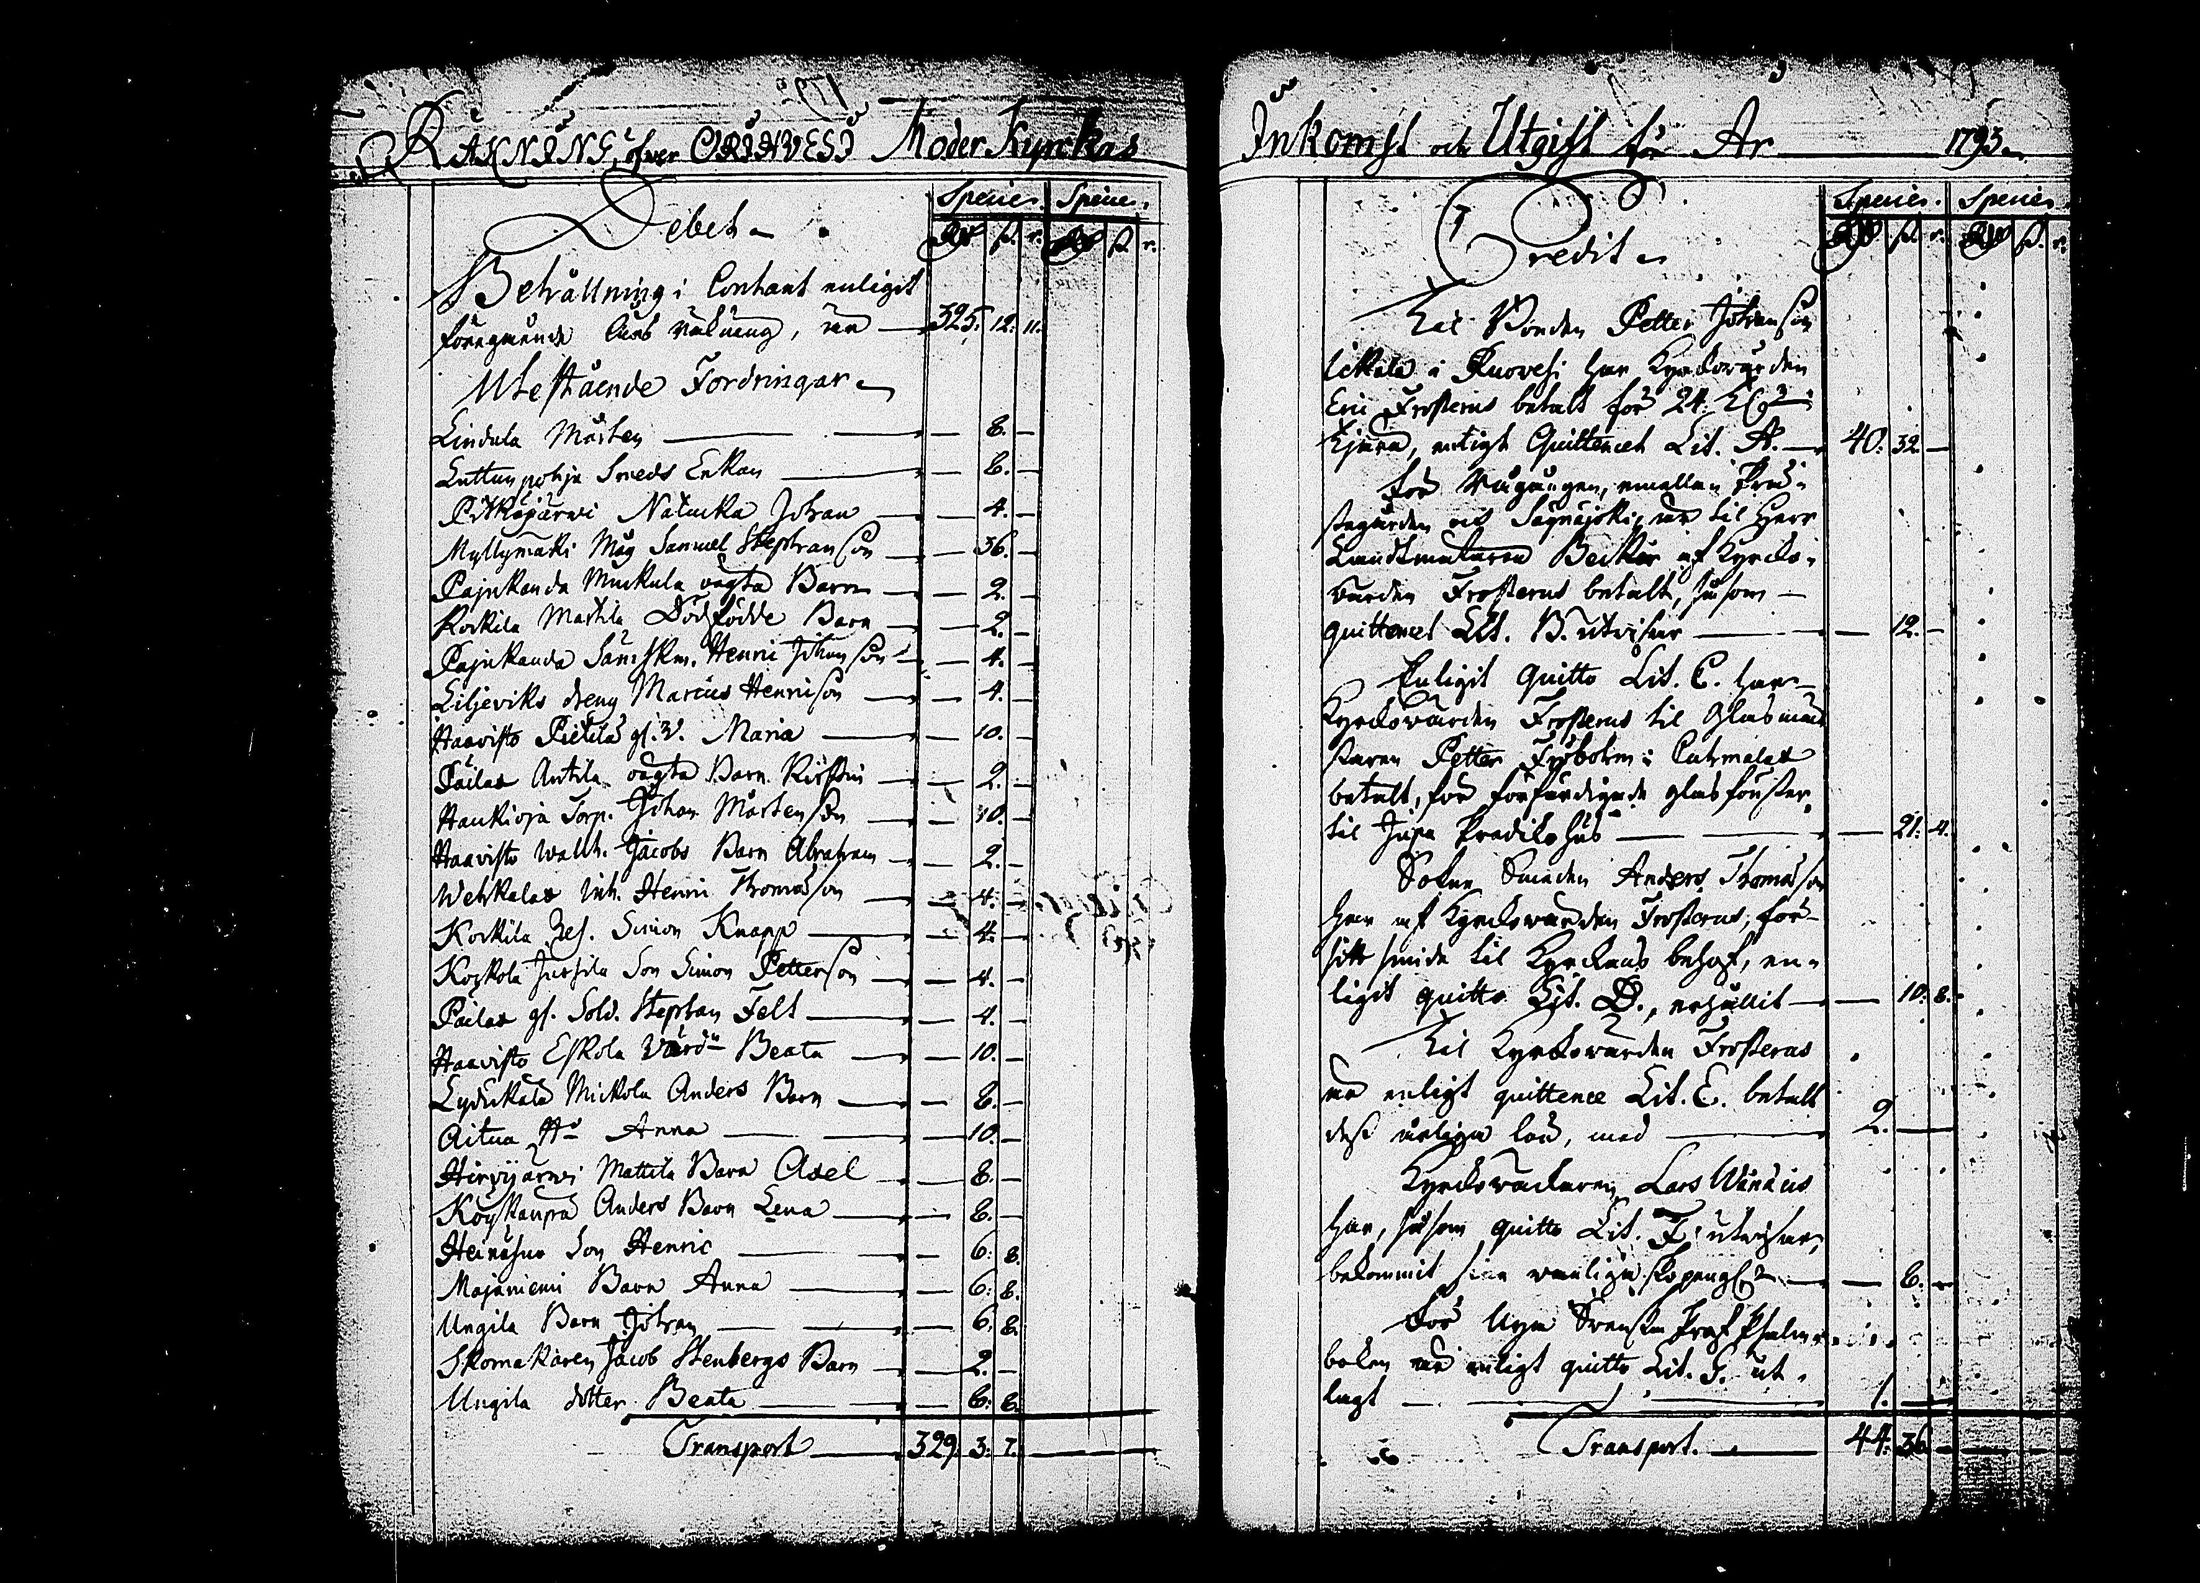 1792
RÄKNING öfver ORIHVESI Moder Kyrckas
Debet
Specier. Specier.
Rdr ß. r. Rdr ß. r.
Behållning i Contant enligit
föregående års räkning, är — 325. 12. 11.
Utestående Fordringar
Lindula Mårten — 8. —
Luttunpohja Smeds Enkan — 8. —
Pitkäjärwi Johan — 4. —
Myllymäki Måg Samuel Stephansson — 36. —
Pajukanda Muckula oägta Barn — 2. —
Korkila Mattila Dödfödde Barn — 2. —
Pajukanda Henric Johansson — 4. —
Liljeviks dreng Marcus Henricsson — 4. —
Haavisto Pietilä Maria — 10. —
Päilax Antila oägta Barn — 2. —
Haukioja Torp. Johan Mårtensson — 10. —
Haavisto Jacobs Barn Abraham — 2. —
Wehkalax Inh. Henric Thomasson — 4. —
Korkila Simon Knapp — 4. —
Koskola Jussila Son Simon Petterson — 4. —
Päilax gl. Sold. Stephan Felt — 4. —
Haavisto Eskola Värdin Beata — 10. —
Lyduckala Mickola Anders Barn — 8. —
Aitua Hu Anna — 10. —
Hirvijärwi Mattila Barn Axel — 8. —
Anders Barn Lena — 8. —
Son Henric — 6. 8.
Majaniemi Barn Anna — 6. 8.
Ungila Barn Johan — 6. 8.
Skomakaren Jacob Stenbergs Barn — 2. —
Ungila dotter Beata — 6. 8.
Transport — 329. 3. 7.
Inkomst och Utgift för År 1793.
Credit
Specier. Specier.
Rdr ß. r. Rdr ß. r.
Til Bonden Petter Johansson
i Ruovesi har Kyrkovärden
Eric Frosterus betalt för 24
tjära, enligt Quittencet Lit. A. — 40. 32. —
för vägningen, emellan Präs-
tegården och är til Herr
Landtmätaren Becker af Kyrcko-
värden Frosterus betalt, såsom
quittencet Lit. B. utvisar — 12. —
Enligit Quitto Lit. C. har
Kyrckovärden Frosterus til Glasmäs-
taren Petter i
betalt, för förfärdigade glasfönster
til Predikohus — 21. 4.
Sokne Smeden Anders Thomasson
har af Kyrckovärden Frosterus, för
smide til Kyrckans behof, en-
ligit quitto Lit. D., erhållit — 10. 8.
Til Kyrckovärden Frosterus
är enligt quittence Lit. E. betalt
dess årliga lön, med — 2. —
Kyrckovacktaren Lars
har, såsom quitto Lit. F. utvisar,
bekommit sina vanliga — 8. —
För Nya Svenska Psalm-
boken är enligt quitto Lit. G. ut-
lagt — 1. —
Transport. — 44. 36. —